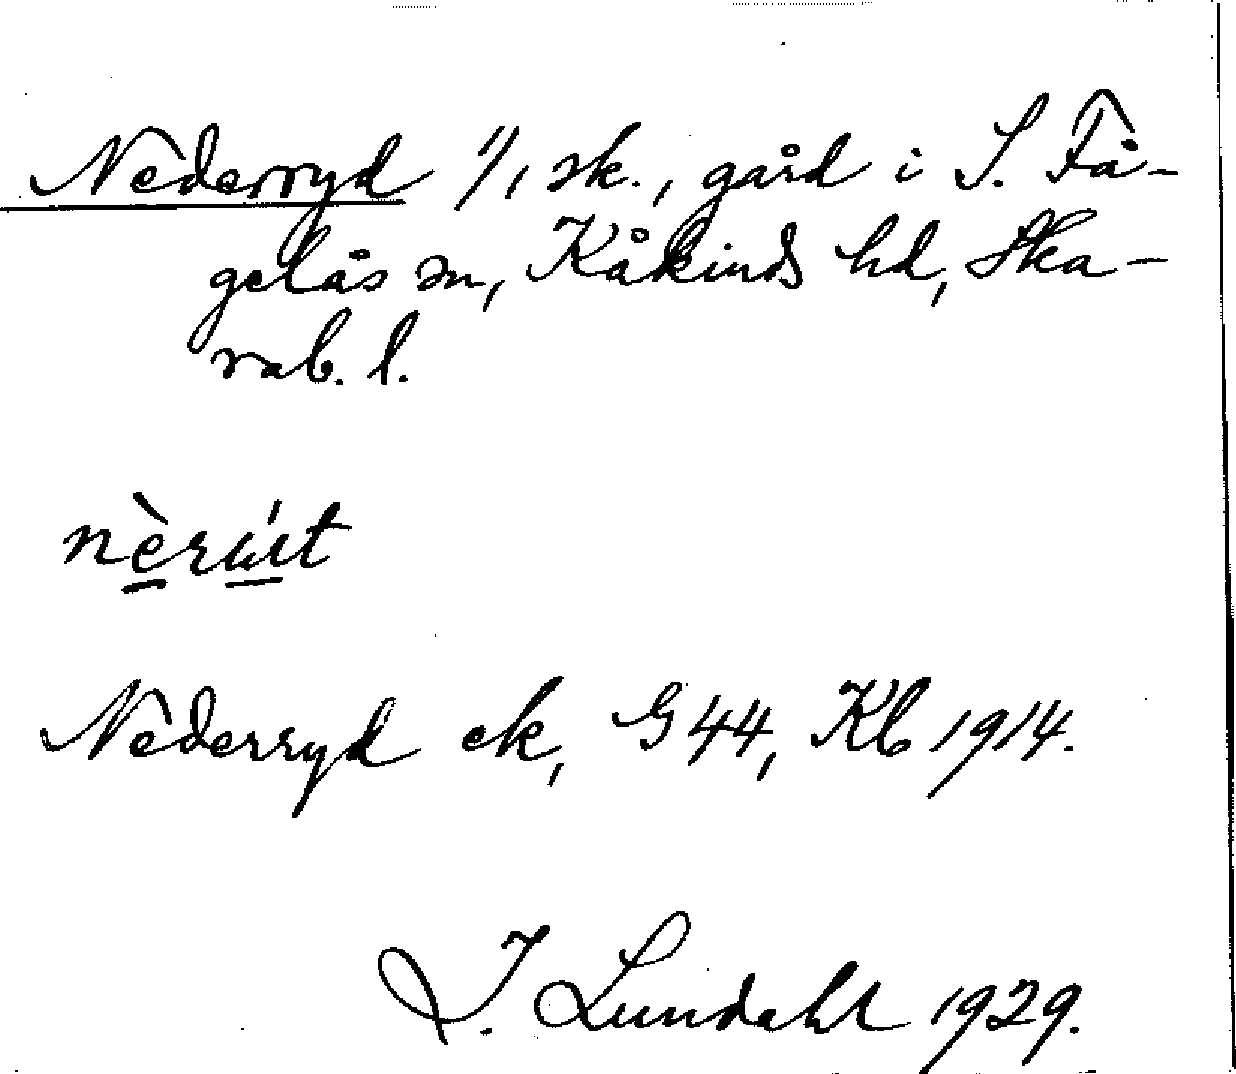 Nederryd 1/1 sk., gård i S. Få-
gelås sn, Kåkinds hd, Ska-
rab. l.
nèrút
Nederryd ek, G 44, Kb 1914.
I. Lundahl 1929.